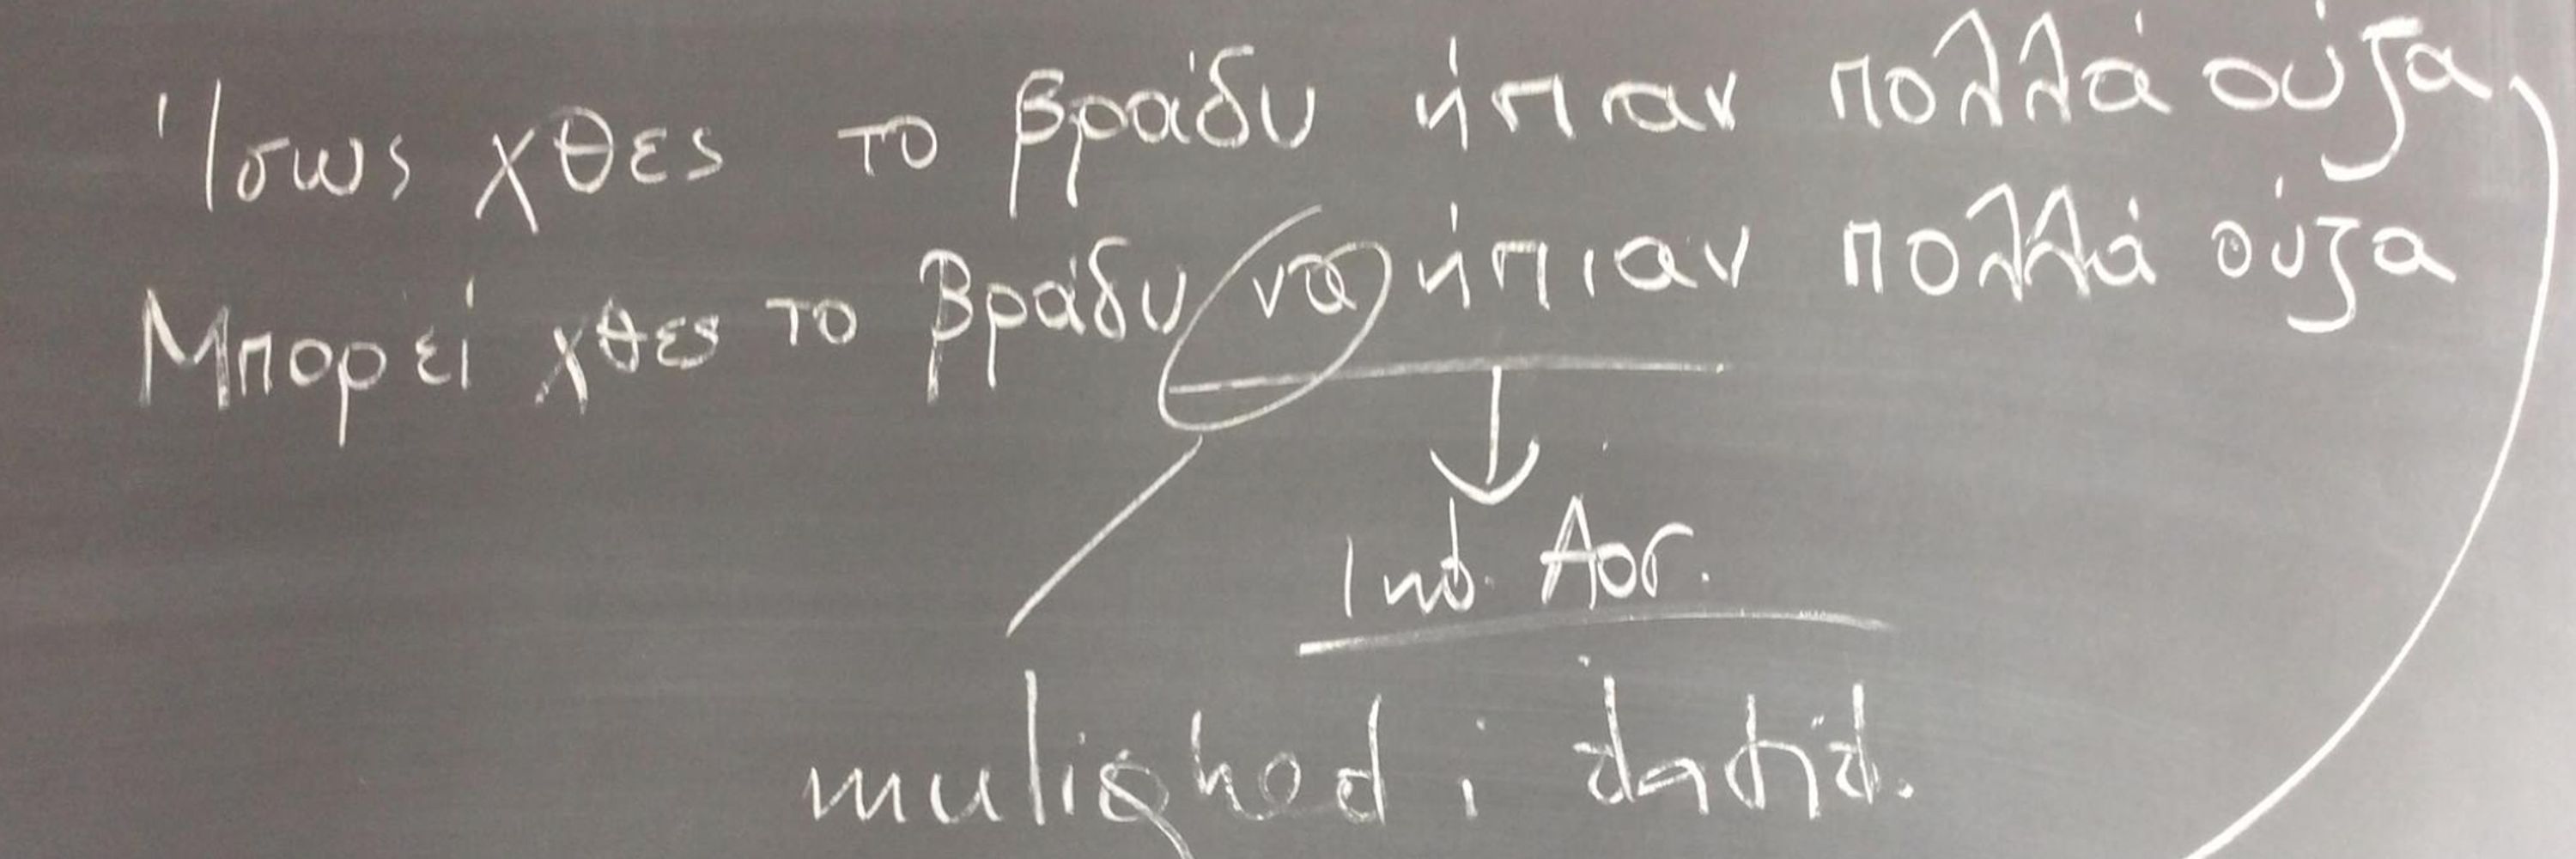 Ίσως χθες το βράδυ ήπιαν πολλά ούζα
Μπορεί χθες το βράδυ να ήπιαν πολλά ούζα
Ind. Aor.
mulighed i datid.